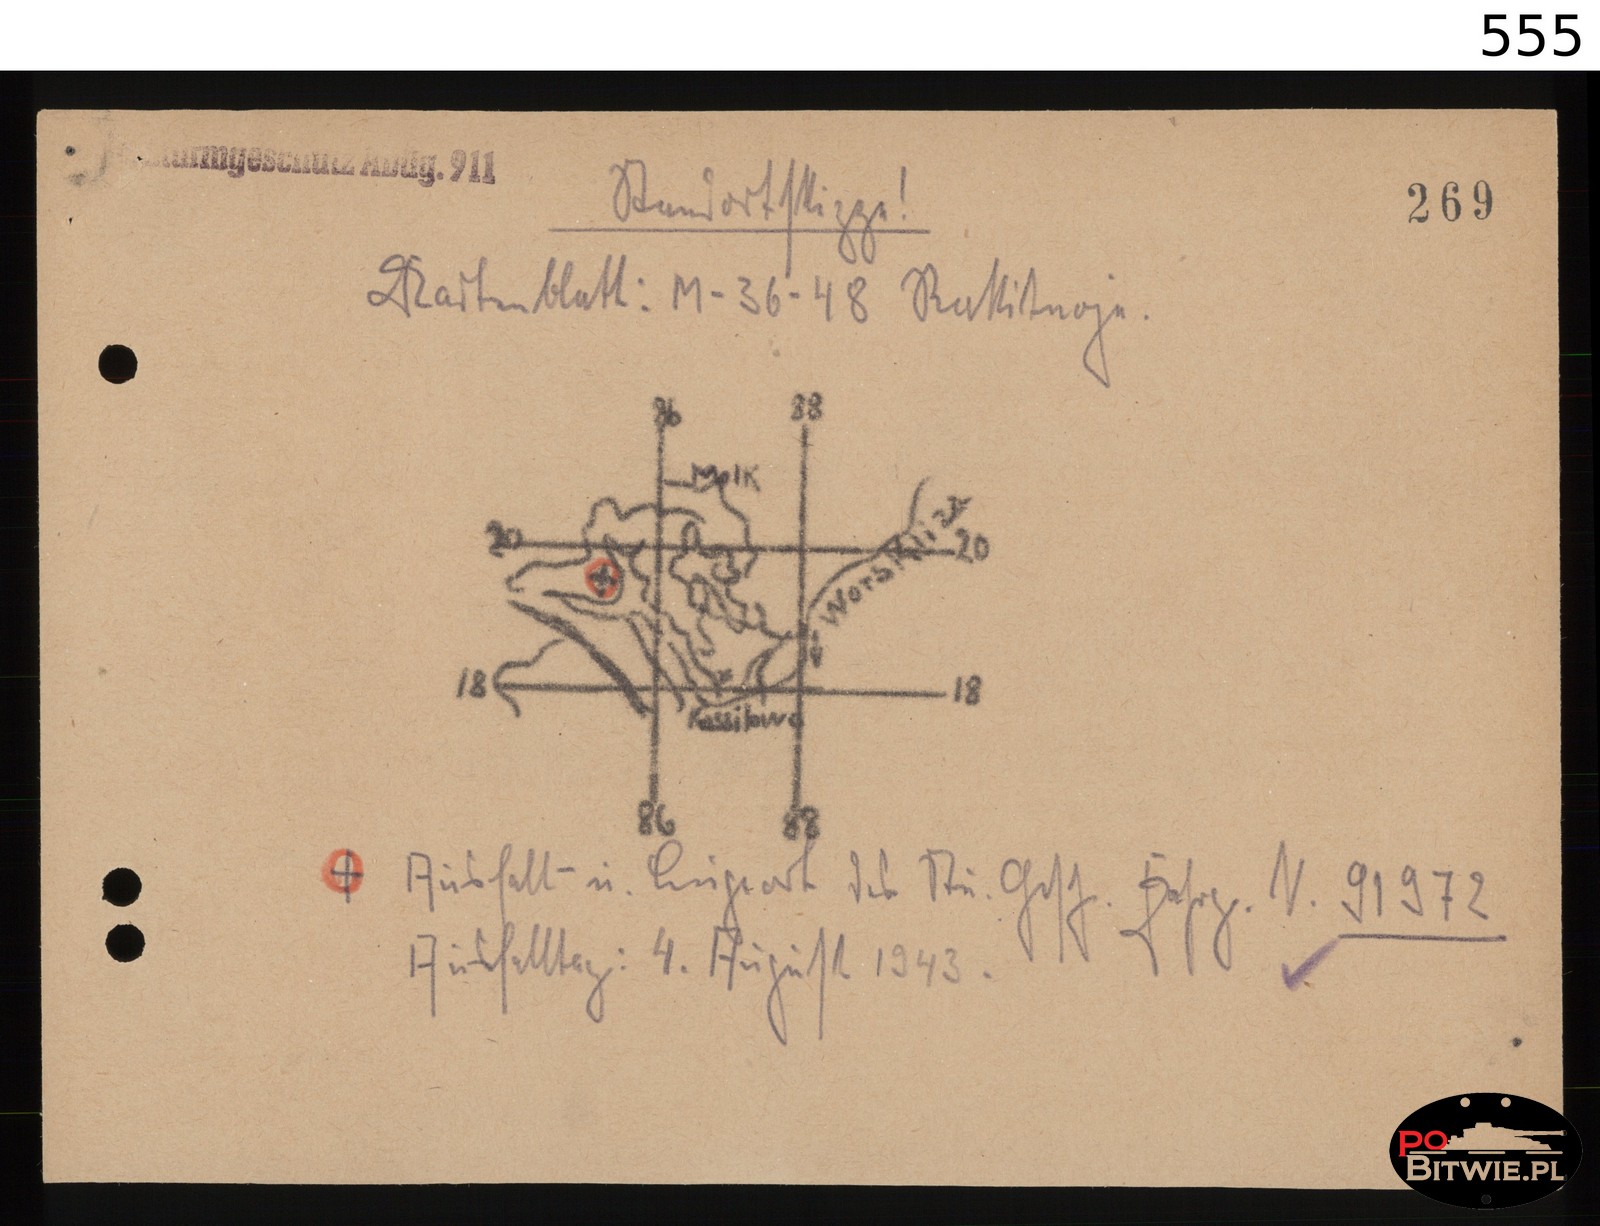 555
Sturmgeschütz Abtlg. 911
269
Standortskizze!
Kartenblatt: M-36-48 Rakitnoje.
86 88
Molk
20 Worskliza 20
18 18
Kossilowo
86 88
Ausfall- u. Liegeort des Stu. Gesch. Fahrg. N. 91972
Ausfalltag: 4. August 1943.
PO
BITWIE.PL